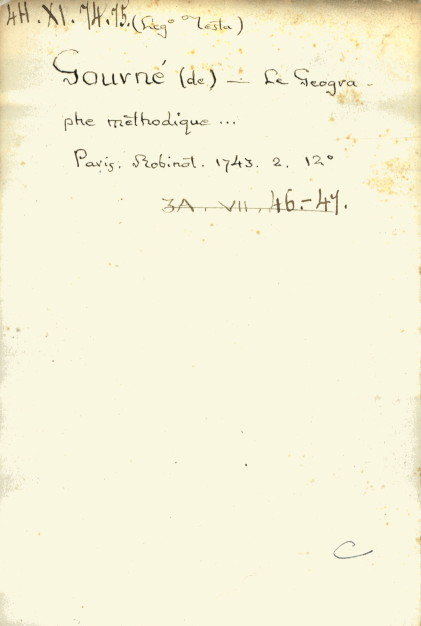 4H. XI. 74.75. (Leg° Testa)
Gourné (de) — Le Geogra-
phe méthodique ...
Paris. Robinot. 1743. 2. 12°
3A. VII. 46.-47.
C